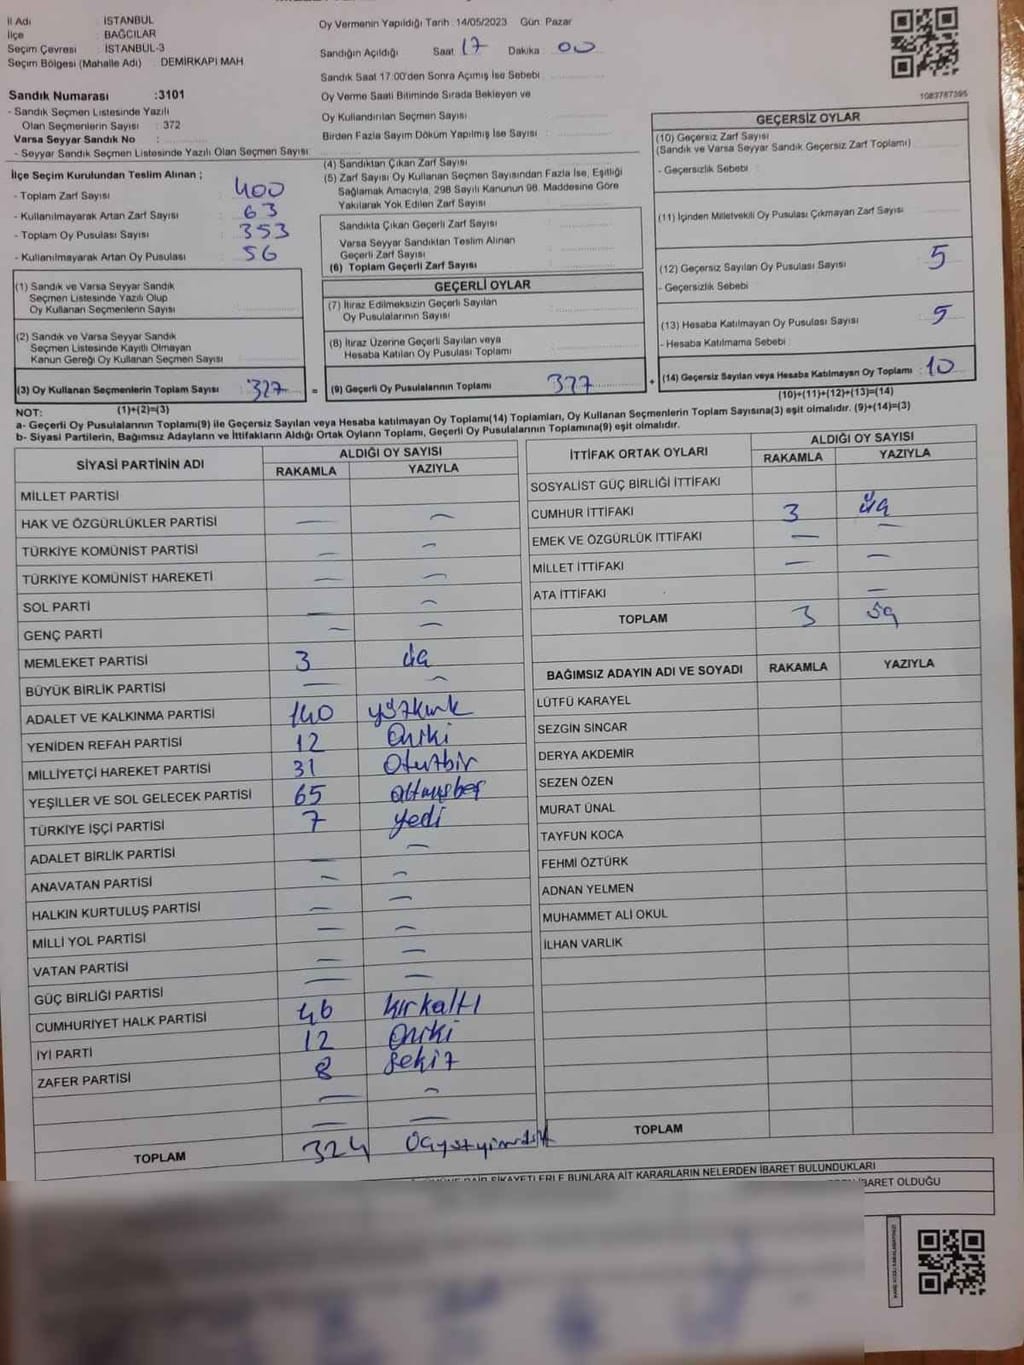 İl Adı İSTANBUL
İlçe BAĞCILAR
Seçim Çevresi : İSTANBUL-3
Seçim Bölgesi (Mahalle Adı) : DEMİRKAPI MAH
Sandık Numarası :3101
- Sandık Seçmen Listesinde Yazılı
Olan Seçmenlerin Sayısı : 372
Varsa Seyyar Sandık No :
- Seyyar Sandık Seçmen Listesinde Yazılı Olan Seçmen Sayısı:
Oy Vermenin Yapıldığı Tarih :14/05/2023 Gün: Pazar
Sandığın Açıldığı Saat 17 Dakika : 00
Sandık Saat 17:00'den Sonra Açımış İse Sebebi :
Oy Verme Saati Bitiminde Sırada Bekleyen ve
Oy Kullandırılan Seçmen Sayısı :
Birden Fazla Sayım Döküm Yapılmış İse Sayısı :
1083787395
İlçe Seçim Kurulundan Teslim Alınan ;
- Toplam Zarf Sayısı : 400
- Kullanılmayarak Artan Zarf Sayısı : 63
- Toplam Oy Pusulası Sayısı : 353
- Kullanılmayarak Artan Oy Pusulası : 56
(1) Sandık ve Varsa Seyyar Sandık
Seçmen Listesinde Yazılı Olup
Oy Kullanan Seçmenlerin Sayısı :
(2) Sandık ve Varsa Seyyar Sandık
Seçmen Listesinde Kayıtlı Olmayan
Kanun Gereği Oy Kullanan Seçmen Sayısı :
(3) Oy Kullanan Seçmenlerin Toplam Sayısı : 327 =
(4) Sandıktan Çıkan Zarf Sayısı :
(5) Zarf Sayısı Oy Kullanan Seçmen Sayısından Fazla İse, Eşitliği
Sağlamak Amacıyla, 298 Sayılı Kanunun 98. Maddesine Göre
Yakılarak Yok Edilen Zarf Sayısı :
Sandıkta Çıkan Geçerli Zarf Sayısı :
Varsa Seyyar Sandıktan Teslim Alınan
Geçerli Zarf Sayısı :
(6) Toplam Geçerli Zarf Sayısı :
GEÇERLİ OYLAR
(7) İtiraz Edilmeksizin Geçerli Sayılan
Oy Pusulalarının Sayısı :
(8) İtiraz Üzerine Geçerli Sayılan veya
Hesaba Katılan Oy Pusulası Toplamı :
(9) Geçerli Oy Pusulalarının Toplamı : 327 +
GEÇERSİZ OYLAR
(10) Geçersiz Zarf Sayısı :
(Sandık ve Varsa Seyyar Sandık Geçersiz Zarf Toplamı)
- Geçersizlik Sebebi :
(11) İçinden Milletvekili Oy Pusulası Çıkmayan Zarf Sayısı :
(12) Geçersiz Sayılan Oy Pusulası Sayısı : 5
- Geçersizlik Sebebi :
(13) Hesaba Katılmayan Oy Pusulası Sayısı : 5
- Hesaba Katılmama Sebebi :
(14) Geçersiz Sayılan veya Hesaba Katılmayan Oy Toplamı : 10
(10)+(11)+(12)+(13)=(14)
NOT: (1)+(2)=(3)
a- Geçerli Oy Pusulalarının Toplamı(9) ile Geçersiz Sayılan veya Hesaba katılmayan Oy Toplamı(14) Toplamları, Oy Kullanan Seçmenlerin Toplam Sayısına(3) eşit olmalıdır. (9)+(14)=(3)
b- Siyasi Partilerin, Bağımsız Adayların ve İttifakların Aldığı Ortak Oyların Toplamı, Geçerli Oy Pusulalarının Toplamına(9) eşit olmalıdır.
SİYASİ PARTİNİN ADI ALDIĞI OY SAYISI
RAKAMLA YAZIYLA
MİLLET PARTİSİ
HAK VE ÖZGÜRLÜKLER PARTİSİ — —
TÜRKİYE KOMÜNİST PARTİSİ — —
TÜRKİYE KOMÜNİST HAREKETİ — —
SOL PARTİ — —
GENÇ PARTİ — —
MEMLEKET PARTİSİ 3 üç
BÜYÜK BİRLİK PARTİSİ — —
ADALET VE KALKINMA PARTİSİ 140 yüzkırk
YENİDEN REFAH PARTİSİ 12 Oniki
MİLLİYETÇİ HAREKET PARTİSİ 31 Otuzbir
YEŞİLLER VE SOL GELECEK PARTİSİ 65 altmışbeş
TÜRKİYE İŞÇİ PARTİSİ 7 yedi
ADALET BİRLİK PARTİSİ — —
ANAVATAN PARTİSİ — —
HALKIN KURTULUŞ PARTİSİ — —
MİLLİ YOL PARTİSİ — —
VATAN PARTİSİ — —
GÜÇ BİRLİĞİ PARTİSİ — —
CUMHURİYET HALK PARTİSİ 46 kırkaltı
İYİ PARTİ 12 Oniki
ZAFER PARTİSİ 8 Sekiz
— —
— —
TOPLAM 324 Üçyüzyirmidört
İTTİFAK ORTAK OYLARI ALDIĞI OY SAYISI
RAKAMLA YAZIYLA
SOSYALİST GÜÇ BİRLİĞİ İTTİFAKI
CUMHUR İTTİFAKI 3 üç
EMEK VE ÖZGÜRLÜK İTTİFAKI — —
MİLLET İTTİFAKI — —
ATA İTTİFAKI —
TOPLAM 3 üç
BAĞIMSIZ ADAYIN ADI VE SOYADI RAKAMLA YAZIYLA
LÜTFÜ KARAYEL
SEZGİN SİNCAR
DERYA AKDEMİR
SEZEN ÖZEN
MURAT ÜNAL
TAYFUN KOCA
FEHMİ ÖZTÜRK
ADNAN YELMEN
MUHAMMET ALİ OKUL
İLHAN VARLIK
TOPLAM
ŞİKAYETLERLE BUNLARA AİT KARARLARIN NELERDEN İBARET BULUNDUKLARI
İBARET OLDUĞU